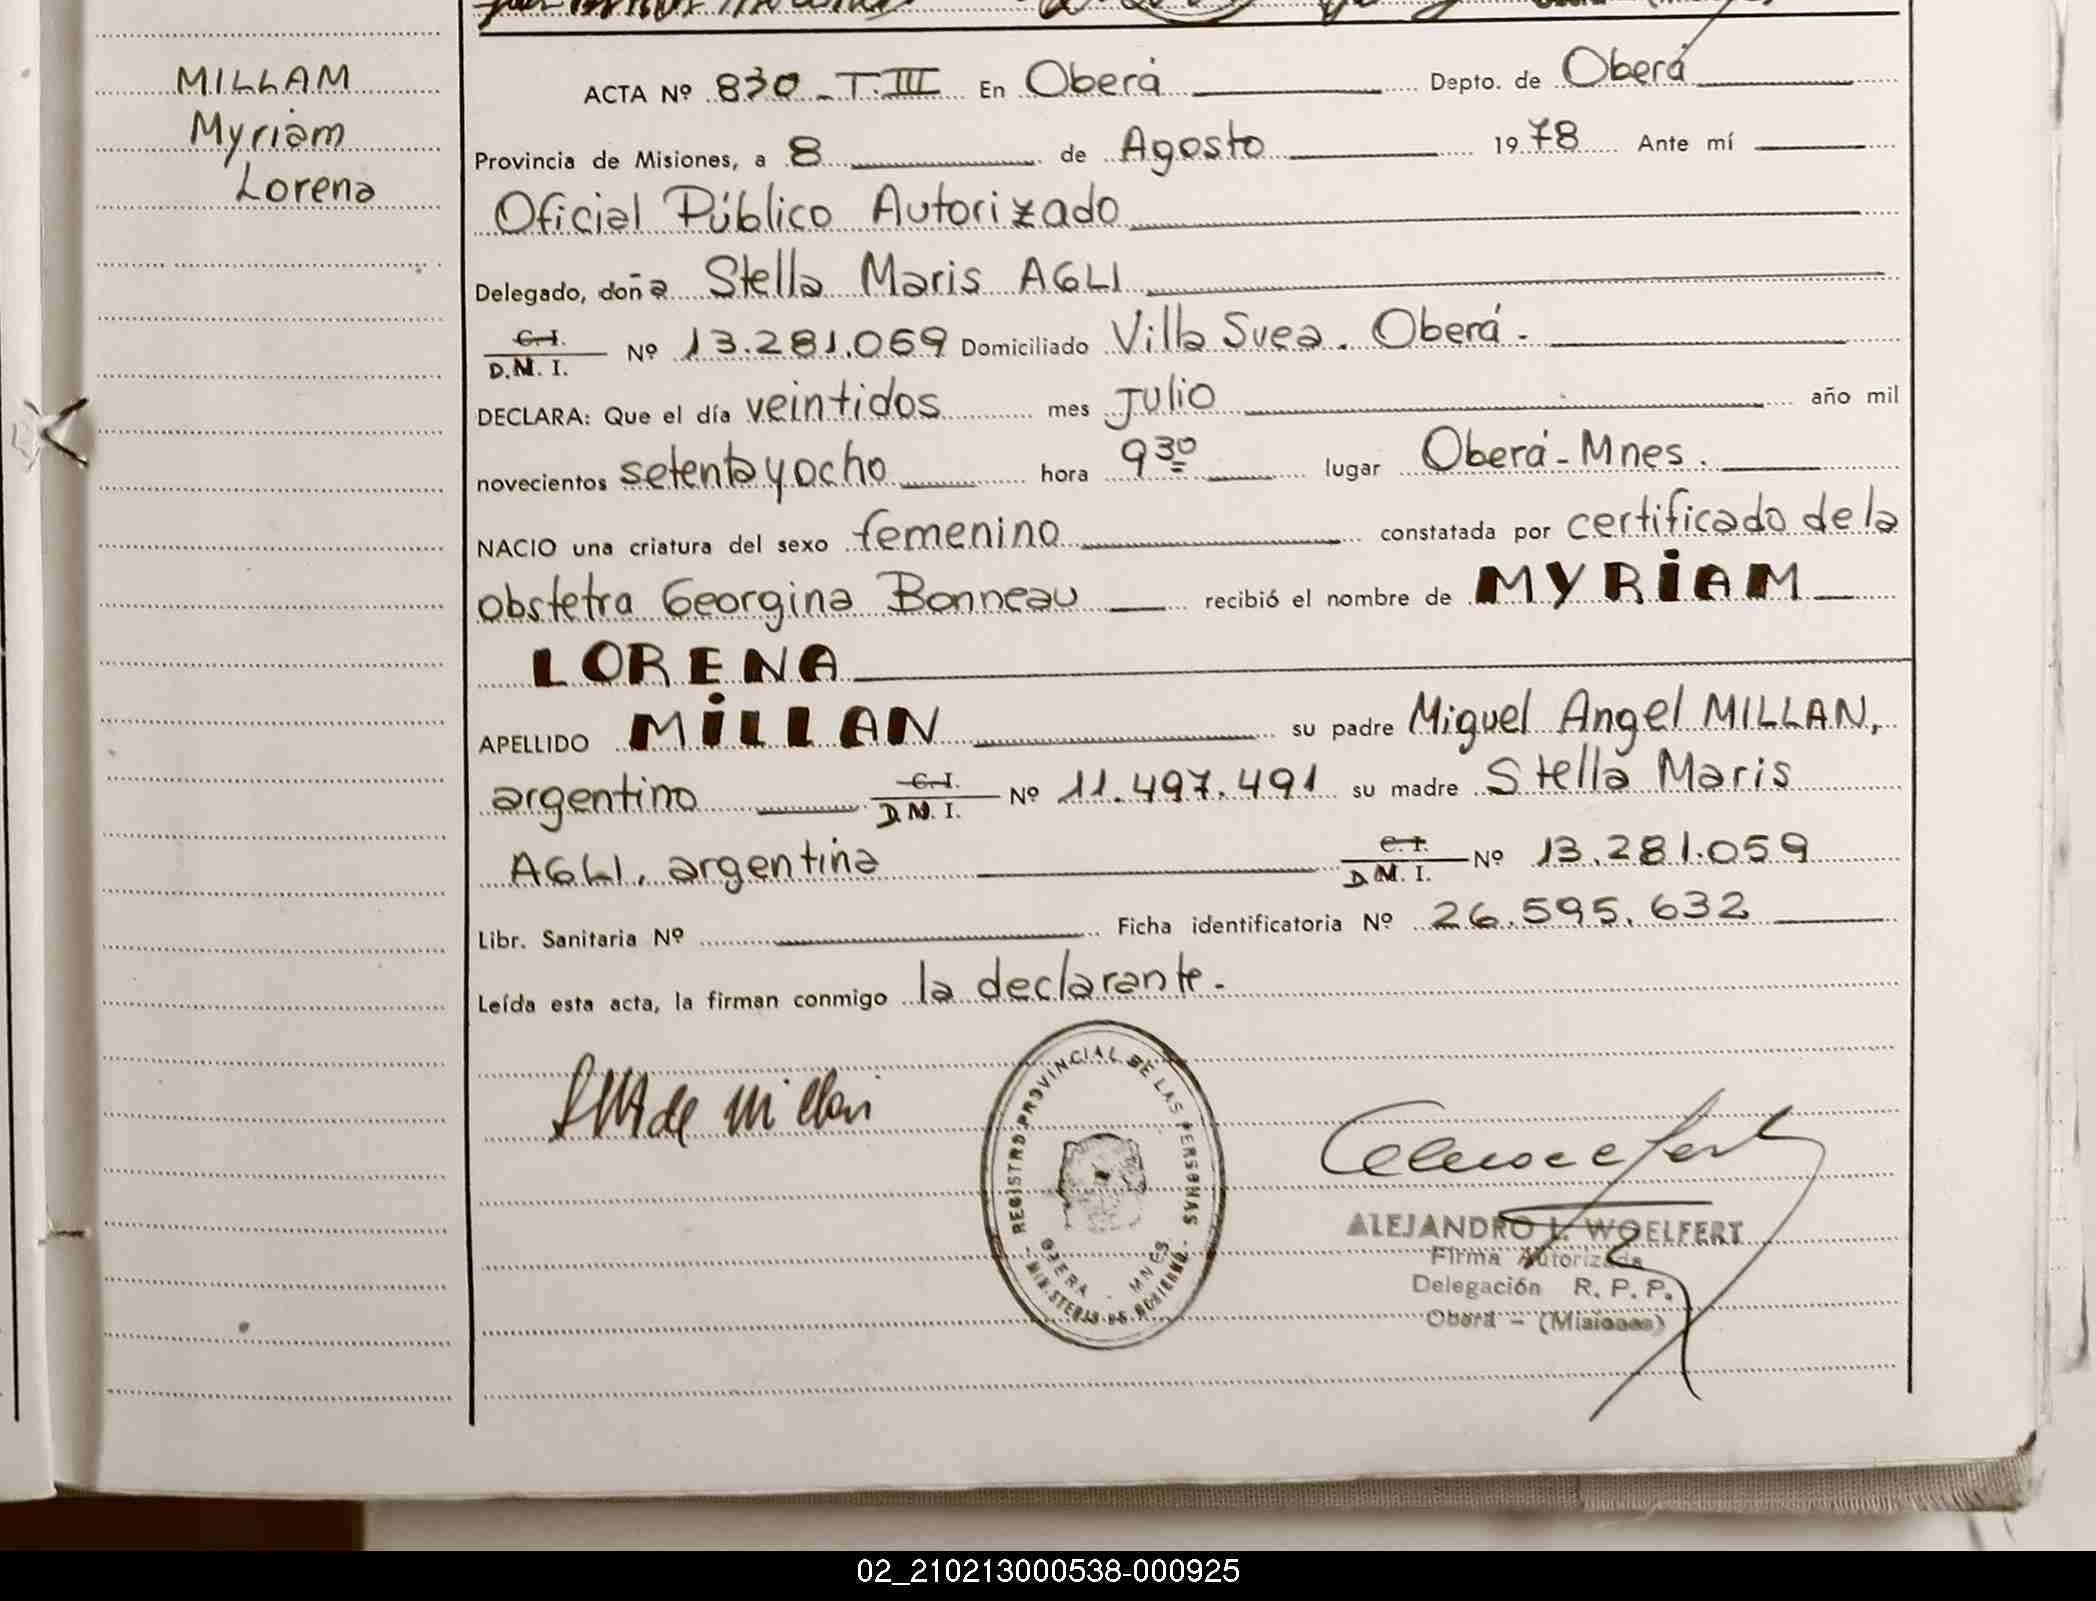 MILLAM
Myriam
Lorena
ACTA Nº 830 - T.III En Oberá Depto. de Oberá
Provincia de Misiones, a 8 de Agosto 1978 Ante mí
Oficial Público Autorizado
Delegado, doña Stella Maris AGLI
C.I.
D.M.I. Nº 13.281.059 Domiciliado Villa Svea. Oberá.-
DECLARA: Que el día veintidos mes Julio año mil
novecientos setenta y ocho hora 9 30 lugar Oberá - Mnes.
NACIO una criatura del sexo femenino constatada por certificado de la
obstetra Georgina Bonneau recibió el nombre de MYRIAM
LORENA
APELLIDO MILLAN su padre Miguel Angel MILLAN,
argentino C.I. D.M.I. Nº 11.497.491 su madre Stella Maris
AGLI, argentina C.I. D.M.I. Nº 13.281.059
Libr. Sanitaria Nº Ficha identificatoria Nº 26.595.632
Leída esta acta, la firman conmigo la declarante.-
de Millan
REGISTRO PROVINCIAL DE LAS PERSONAS
OBERA - MNES
- MINISTERIO DE GOBIERNO -
ALEJANDRO L. WOELFERT
Firma Autorizada
Delegación R. P. P.
Oberá - (Misiones)
02_210213000538-000925